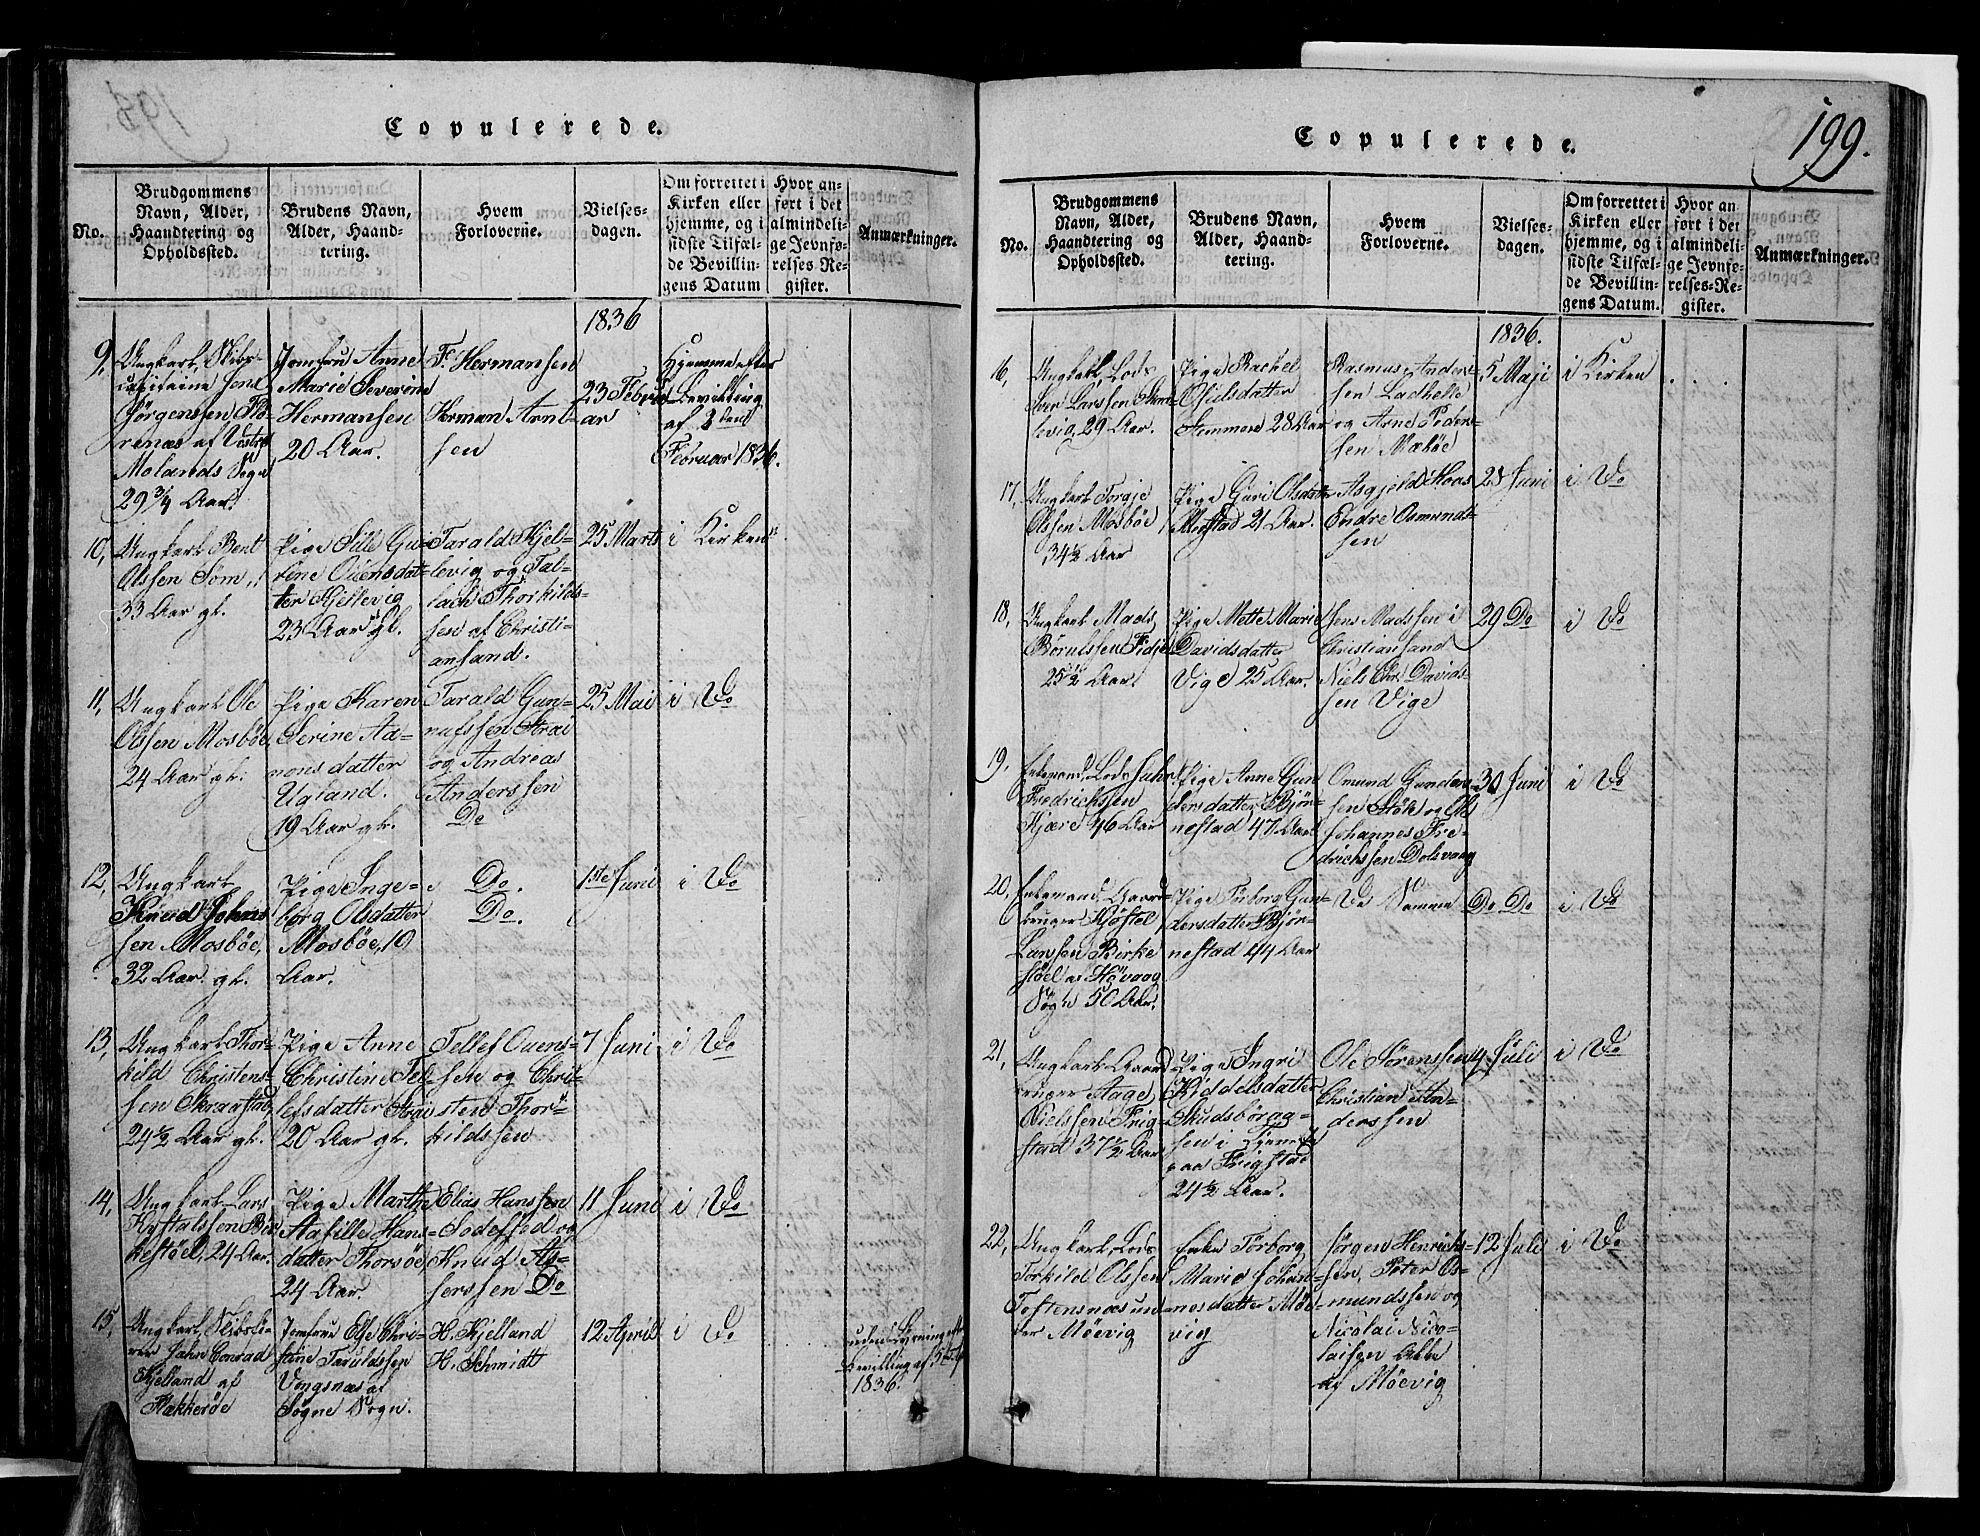 198.
Copulerede.
No.
Brudgommens
Navn, Alder,
Haandtering og
Opholdssted.
Brudens Navn,
Alder, Haand-
tering.
Hvem
Forloverne.
Vielses-
dagen.
Om forrettet i
Kirken eller
hjemme, og i
sidste Tilfæl-
de Bevillin-
gens Datum
Hvor an-
ført i det
almindeli-
ge Jevnfø-
relses-Re-
gister.
Anmærkninger.
1836
9,
Ungkarl, Skibs-
capitaine Jens
Jørgenssen
af Vestre
Molands Sogn
29 3/4 Aar.
Jomfru Anne
Marie Severene
Hermansen
20 Aar.
F. Hermansen
Herman Arnt-
sen
23 Februar
Hjemme efter
Bevilling
af
Februar 1836.
10,
Ungkarl Bent
Olssen Som,
33 Aar gl.
Pige Sille Gu-
rine Ouensdat-
ter Kjellevig
23 Aar gl.
Tarald Kjel-
levig og Tal-
lack Thorkilds-
sen af Christi-
ansand.
25 Marts
i Kirken
11,
Ungkarl Ole
Olssen Mosbøe,
24 Aar gl.
Pige Karen
Serine Aa-
nonsdatter
Ugland.
19 Aar gl.
Tarald Gun-
nufssen Strai
og Andreas
Anderssen
Do
25 Mai
i Do
12,
Ungkarl
Knud Johns
sen Mosbøe,
32 Aar gl.
Pige Inge-
borg Olsdatter
Mosbøe, 19
Aar.
Do.
Do.
1ste Juni
i Do
13,
Ungkarl Thor-
kild Christens-
sen Skraastad,
24½ Aar gl.
Pige Anne
Christine Tel-
lefsdatter Strai
20 Aar gl.
Tellef Ouens-
sen og Chri-
sten Thor-
kildssen
7 Juni
i Do
14,
Ungkarl Lars
Kystalssen Bir
kestøel, 24 Aar.
Pige Marthe
Aasille Hans-
datter Thorsøe,
24 Aar.
Elias Hanssen
og
Knud Aa-
serssen Do
11 Juni
i Do
15,
Ungkarl,
John Conrad
Kjelland af
Flekkerøe
Jomfrue Else Chri-
stine Taruldssen
Vongsnæs af
Søgne Sogn.
H. Kjelland
H. Schmidt
12 April
i Do
uden Lysning efter
Bevilling af
1836.
199.
Copulerede.
No.
Brudgommens
Navn, Alder,
Haandtering og
Opholdssted.
Brudens Navn,
Alder, Haand-
tering.
Hvem
Forloverne.
Vielses-
dagen.
Om forrettet i
Kirken eller
hjemme, og i
sidste Tilfæl-
de Bevillin-
gens Datum.
Hvor an-
ført i det
almindeli-
ge Jevnfø-
relses-Re-
gister.
Anmærkninger.
1836.
16,
Ungkarl Lods
Iver Larssen
29 Aar.
Pige Rachel
Osulsdatter
28 Aar
Rasmus Anders-
sen Ladhelle
og Arne Peder-
sen Mæbøe
5 Maji
i Kirken
17,
Ungkarl Torgje
Olssen Mosbøe
34½ Aar
Pige Guri Olsdatter
21 Aar.
Asgjeld Moas
Endre Osmunds-
sen
28 Juni
i Do
18,
Ungkarl Mads
Børulssen Fidje
25½ Aar.
Pige Mette Marie
Davidsdatter
Vige 25 Aar.
Jens Madssen i
Christiansand
Niels Chr. Davids-
sen Vige
29 Do
i Do
19.
Enkemand, Lods Jahn
Fredrichssen
Kjære 46 Aar
Pige Anne Gun
dersdatter Bjør-
nestad 47 Aar.
Omund Gunders-
sen Støle og
Johannes Fre-
drichssen Dolsvaag
30 Juni
i Do
20,
Enkemand, Gaard
bruger Kjøstel
Larssen Birke
støel af Høvaag
Sogn 50 Aar.
Pige Torborg Gun-
dersdatter Bjør-
nestad 44 Aar
De Samme
Do Do
i Do
21,
Ungkarl Gaard
bruger Aage
Nielssen Frig-
stad 37½ Aar
Pige Ingri
Kiddelsdatter
i Tjeneste
paa Frigstad
24½ Aar.
Ole Sørenssen
Christian An-
derssen
4 Juli
i Do
22,
Ungkarl, Lods
Torkild Olssen
Toftensnæs un-
der Møevig
Enke Torborg
Marie Johan-
nesdatter Møe-
vig
Jørgen Henrichs-
sen, Peter Os-
mundssen og
Nicolai Nico-
laisen Alle
af Møevig
12 Juli
i Do